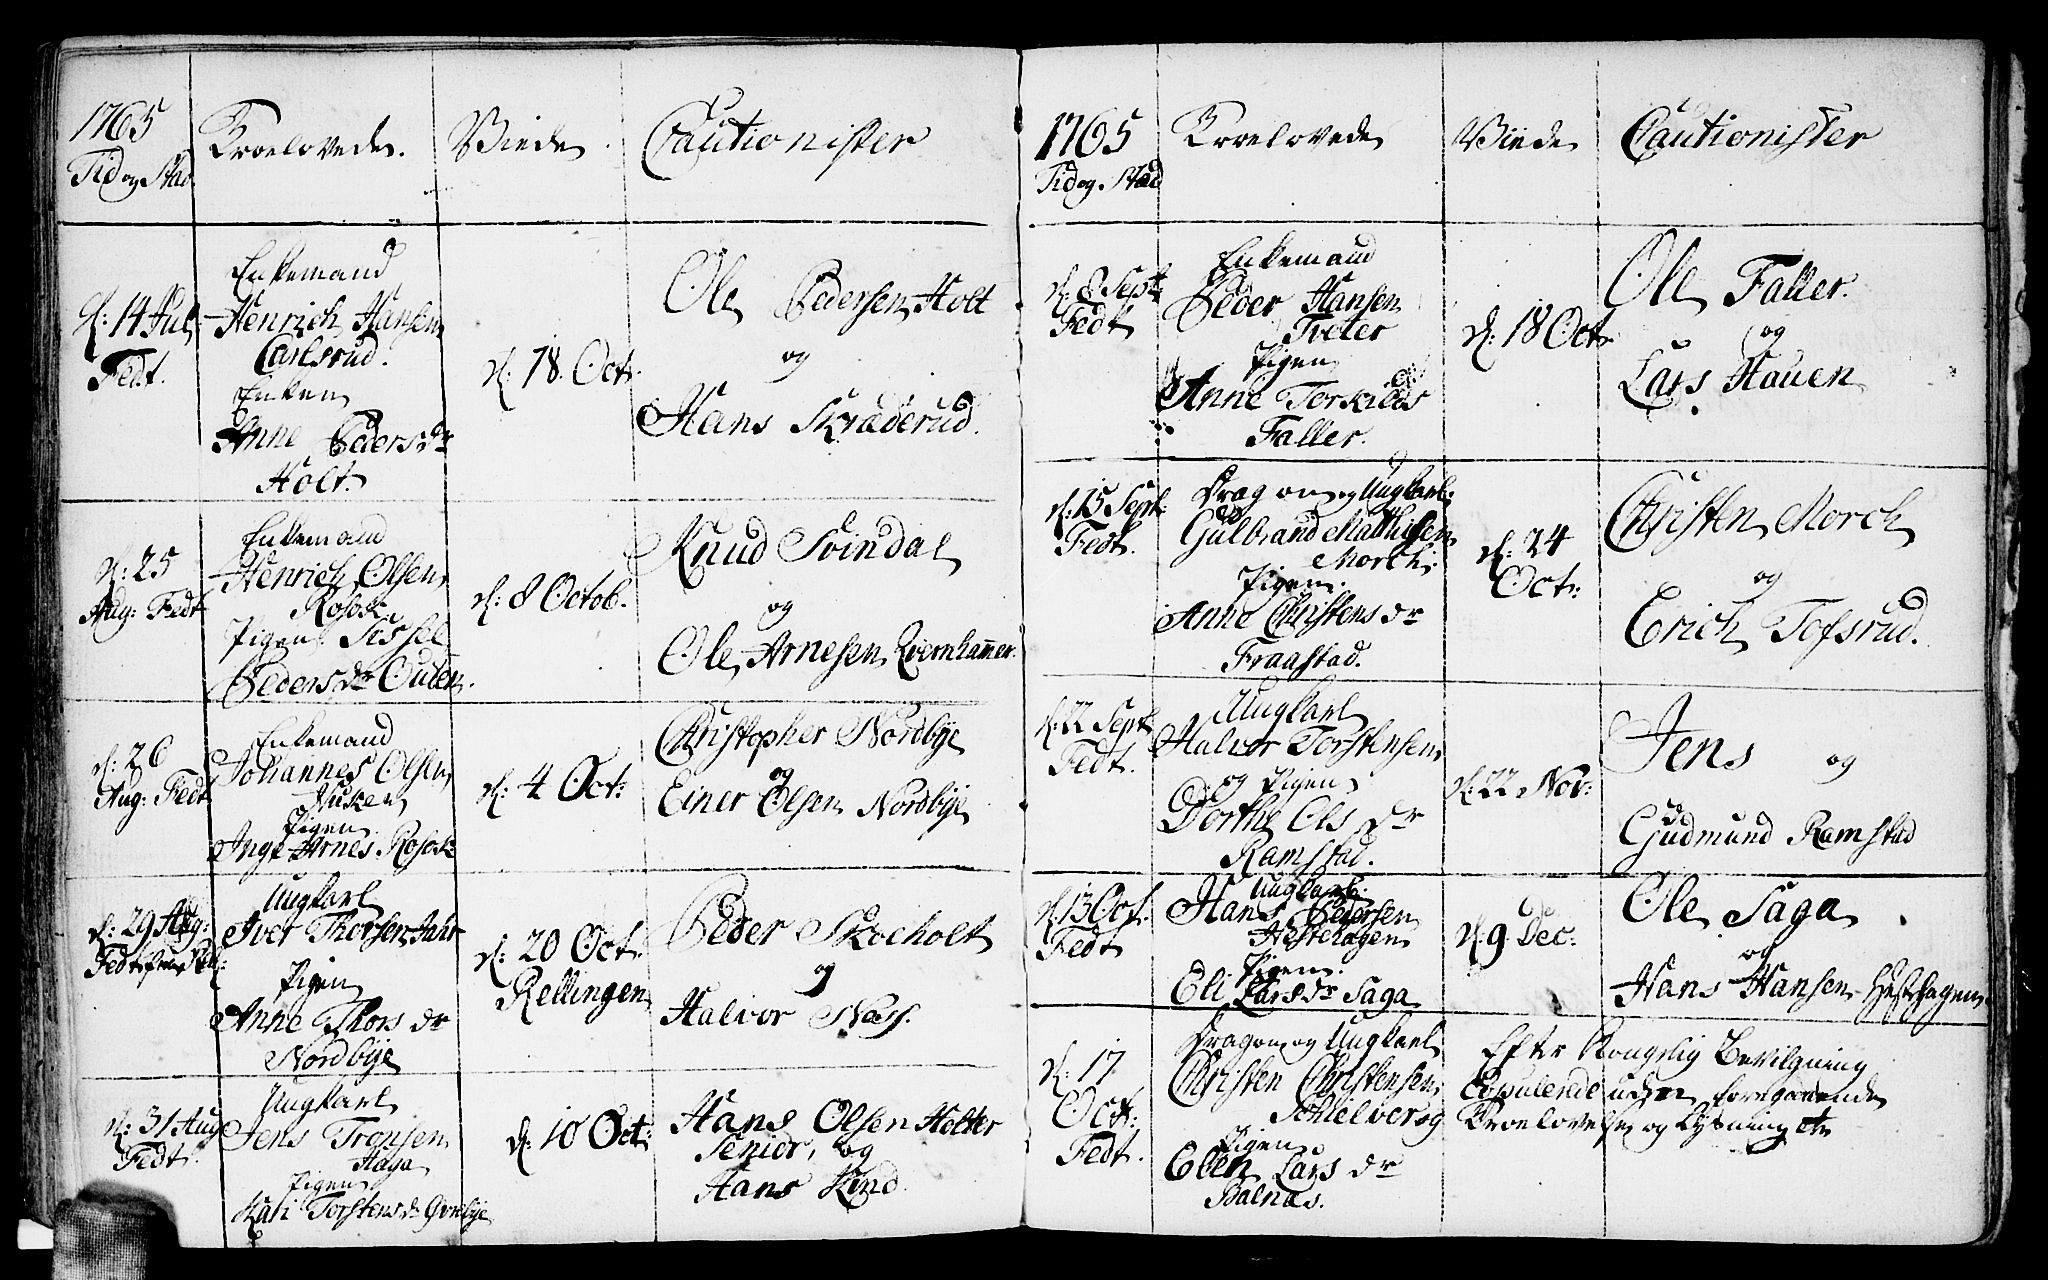 1765
Tid og Stad
Troelovede.
Viede.
Cautionister
d: 14 Jul.
Fedt.
Enkemand
Henrich Hansen
Carlsrud.
Enken
Anne Peders dr
Holt.
d: 18. Oct.
Ole Pedersen Holt
og
Hans Skræderud.
d: 25
Aug: Fedt
Enkemand
Henrich Olsen
Rosok
Pigen Sissel
Peders dr Outen.
d: 8 Octob.
Knud Svindal
og
Ole Arnesen Qvernhammer.
d: 26
Aug: Fedt
Enkemand
Johannes Olsen
Husker
Pigen
Inge Arnes. Rosok
d: 4 Oct:
Christopher Nordbye
og
Einer Olsen Nordbye
d: 29 Aug:
Fedt
Ungkarl
Iver Thorsen Jahr
Pigen
Anne Thors dr
Nordbye
d: 20 Oct.
Rellingen
Peder Skocholt
og
Halvor Næss.
d: 31 Aug
Fedt.
Ungkarl
Jens Tronsen
Haga
Pigen
Kari Torstens dr
d: 10 Oct:
Hans Olsen Holter
Senior, og
Hans Kind
1765
Tid og Stad
Troelovede
Viede
Cautionister
d: 8 Sept:
Fedt
Enkemand
Peder Hansen
Tveter
Pigen
Anne Torkilds d:
Faller.
d: 18 Oct
Ole Faller.
og
Lars Hauen
d: 15 Sept:
Fedt.
Dragon og Ungkarl.
Gulbrand Matthisen
Morch.
Pigen.
Anne Christens dr
Fraastad.
d: 24
Oct:
Christen Morch
og
Erich Tofsrud.
d: 22 Sept
Fedt.
Ungkarl
Halvor Torstensen
og Pigen
Dorthe Ols dr
Ramstad.
d: 22 Nov:
Jens og
Gudmund Ramstad
d: 13 Oct.
Fedt
Ungkarl.
Hans Pedersen
Hestehagen
Pigen.
Eli Lars dr Saga
d: 9 Dec:
Ole Saga
og
Hans Hansen Hestehagen
d: 17
Oct:
Fedt.
Dragon og Ungkarl
Christen Christensen
Schielversog
Pigen
Elen Lars dr
Balnæs.
Efter Kongelig Bevilgning
Copulerede uden foregaaende
Troelovelse og Lysning etc